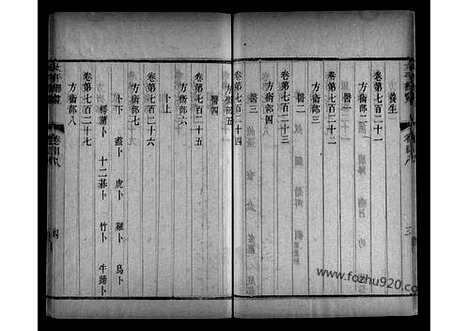 養生
卷第七百二十一
方術部二
醫一
卷第七百二十二
方術部三
醫二
卷第七百二十三
方術部四
醫三
卷第七百二十四
方術部五
醫四
卷第七百二十五
方術部六
卜上
卷第七百二十六
方術部七
卜下 蓍卜 虎卜 雞卜 鳥卜
樗蒲卜 十二棊卜 竹卜 牛蹄卜
卷第七百二十七
方術部八
www.fozhu920.com